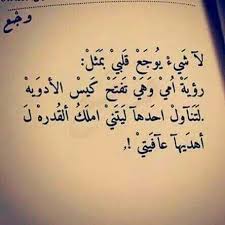 وجْع
لآ شَيءْ يُوجَع قَلبيْ بَمَثلْ:
رؤيَة اُميْ وَهيْ تَفتَح كَيس الأدويَه
.لَتنَآولْ احدهآ لَيتنيْ املَكُ اَلقُدره لَ
أهديهآ عآفيَتيْ !,